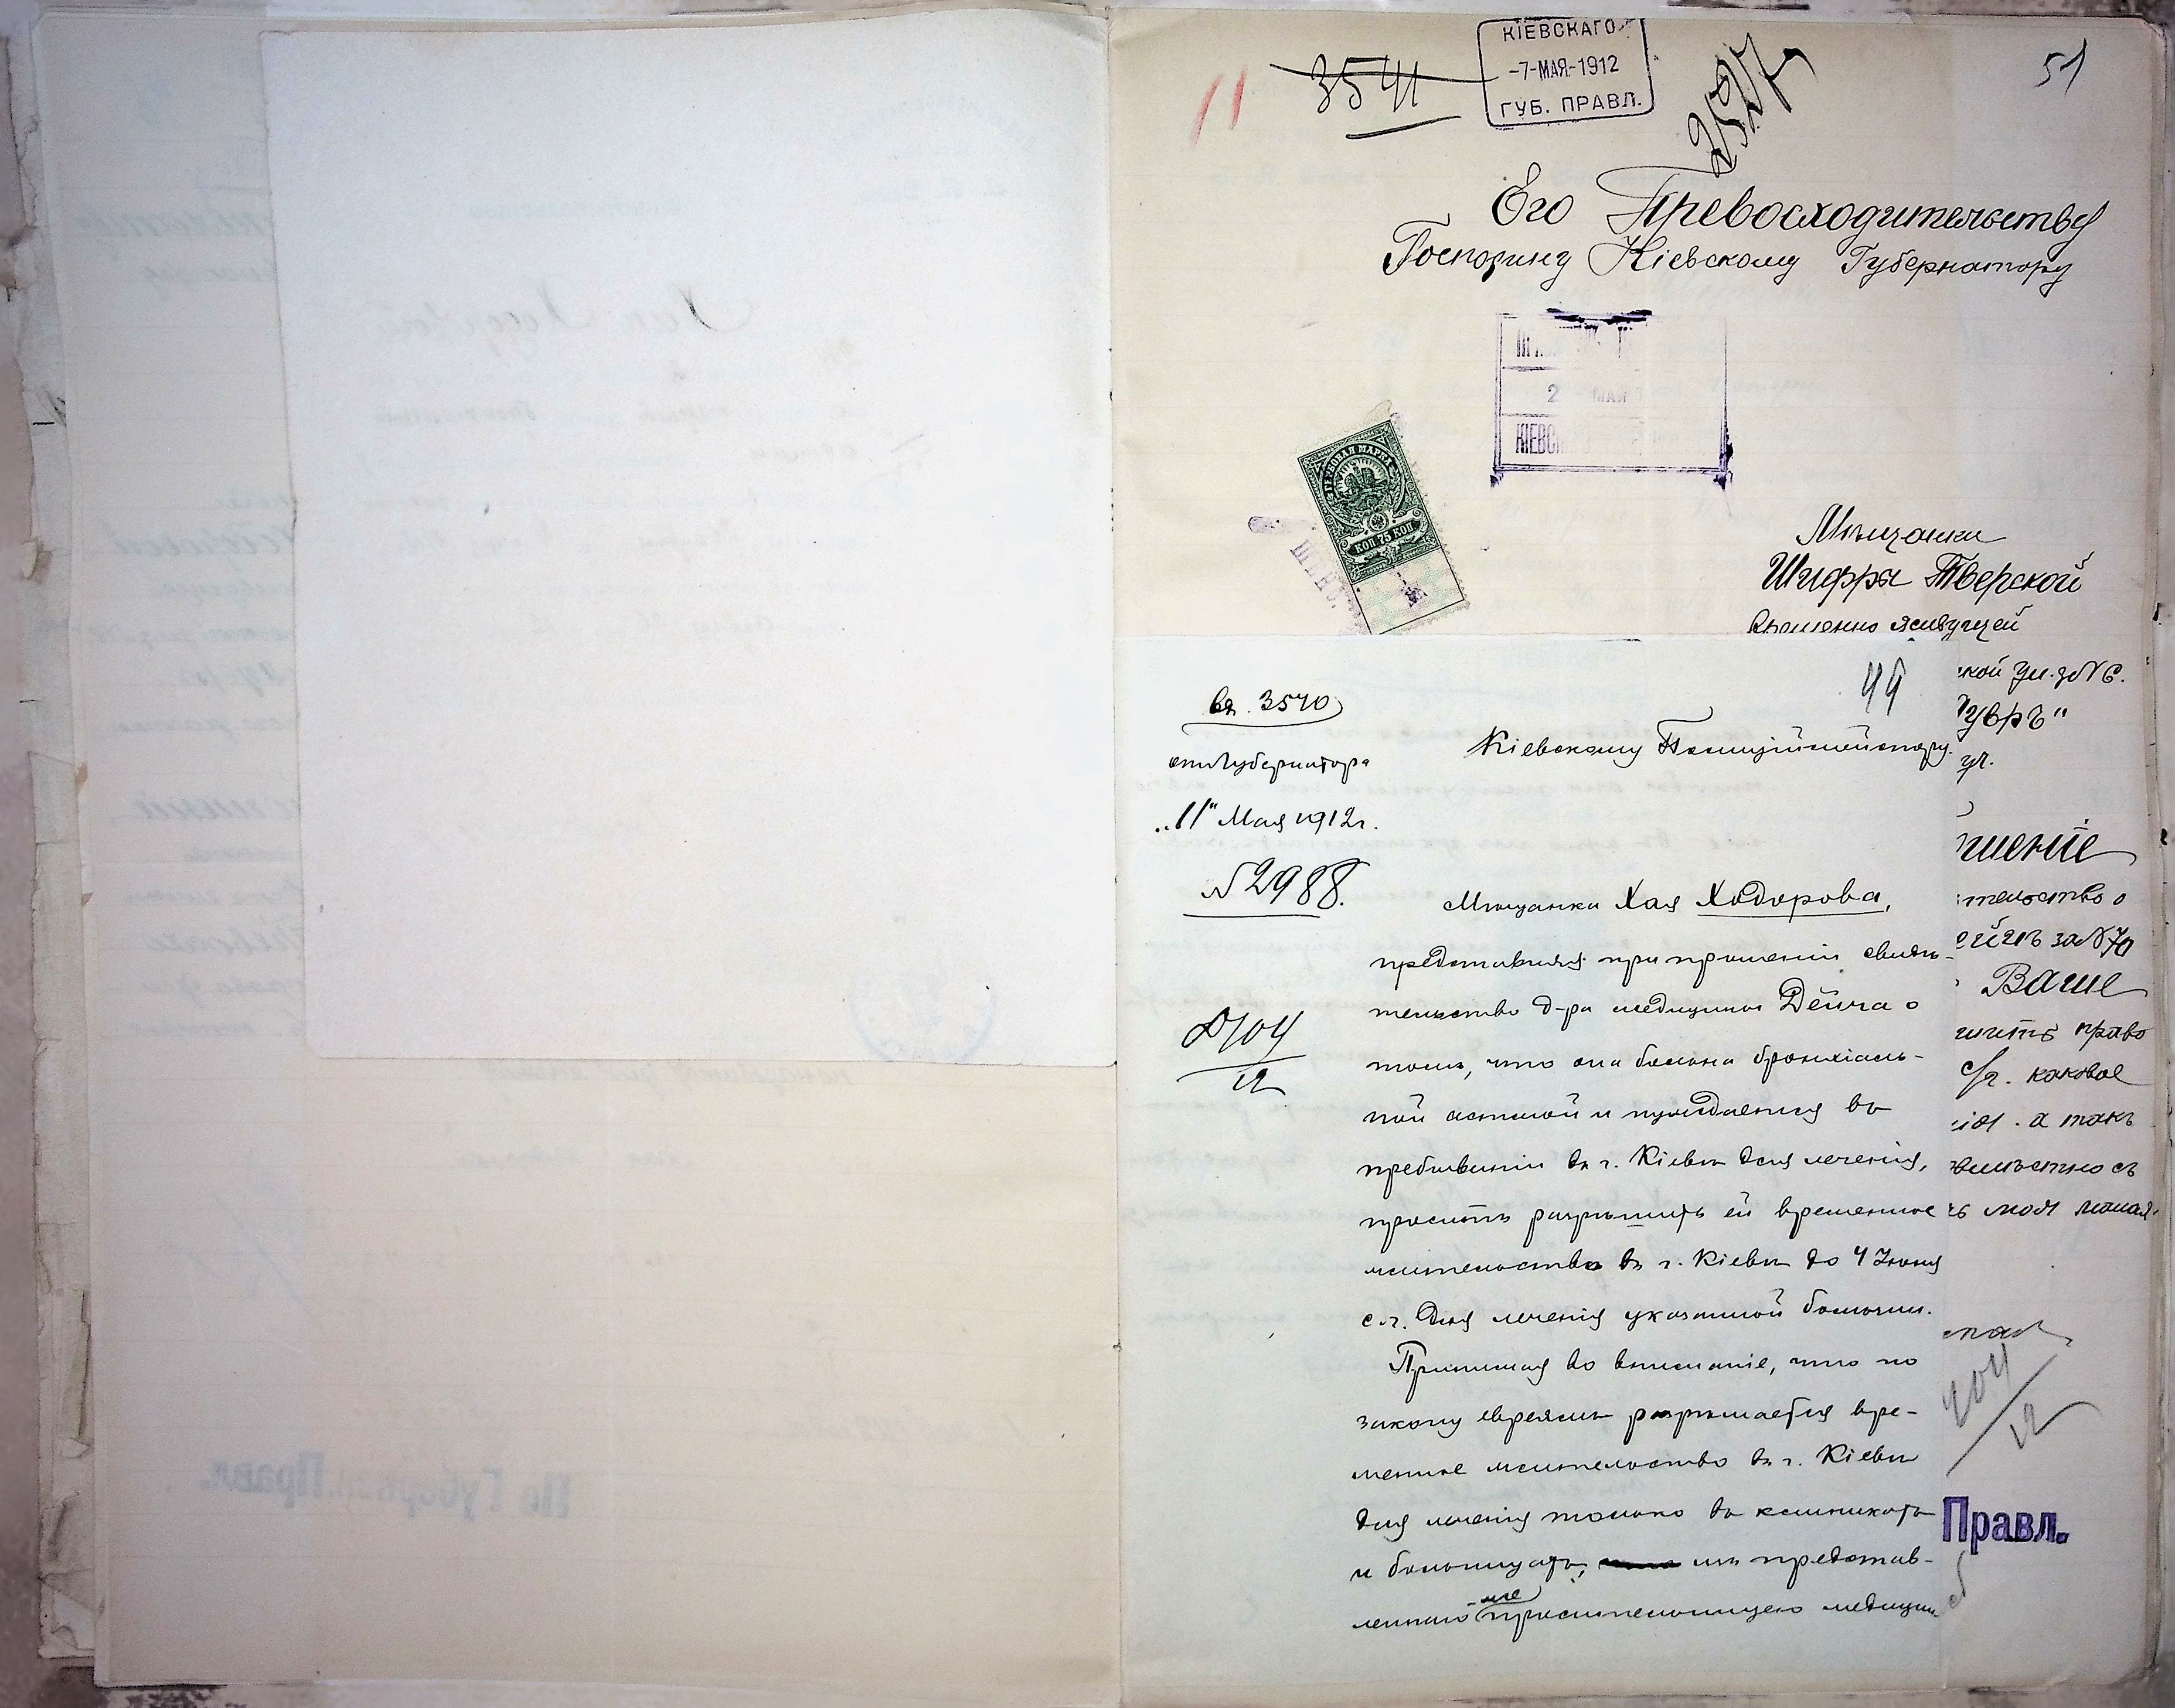 3541
КІЕВСКАГО
-7-МАЯ-1912
ГУБ. ПРАВЛ.
51
Его Превосходительству
Господину Кіевскому Губернатору
2 МАЯ
КІЕВС
ГЕРБОВАЯ МАРКА
КОП. 75 КОП
Мѣщанки
Шифра Тверской
Временно живущей
ской ул. д № 6.
ул.
шеніе
тельство о
за № 70
Ваше
право
с/г. каковое
а такъ
Правл.
44
вх. 3540
отъ Губернатора
„11" Мая 1912 г.
№ 2988.
704
12
Кіевскому Полиціймейстеру.
Мѣщанка Хая Ходорова,
представляя при прошеніи свидѣ-
тельство д-ра медицины Дейча о
томъ, что она больна бронхіаль-
ной астмой и нуждается въ
пребываніи въ г. Кіевѣ для леченія,
проситъ разрѣшить ей временное
жительство въ г. Кіевѣ до 4 Іюня
с.г. для леченія указанной болѣзни.
Принимая во вниманіе, что по
закону евреямъ разрѣшается вре-
менное жительство въ г. Кіевѣ
для леченія только въ клиникахъ
и больницахъ, изъ представ-
леннаго же просительницею медицин-
704
12